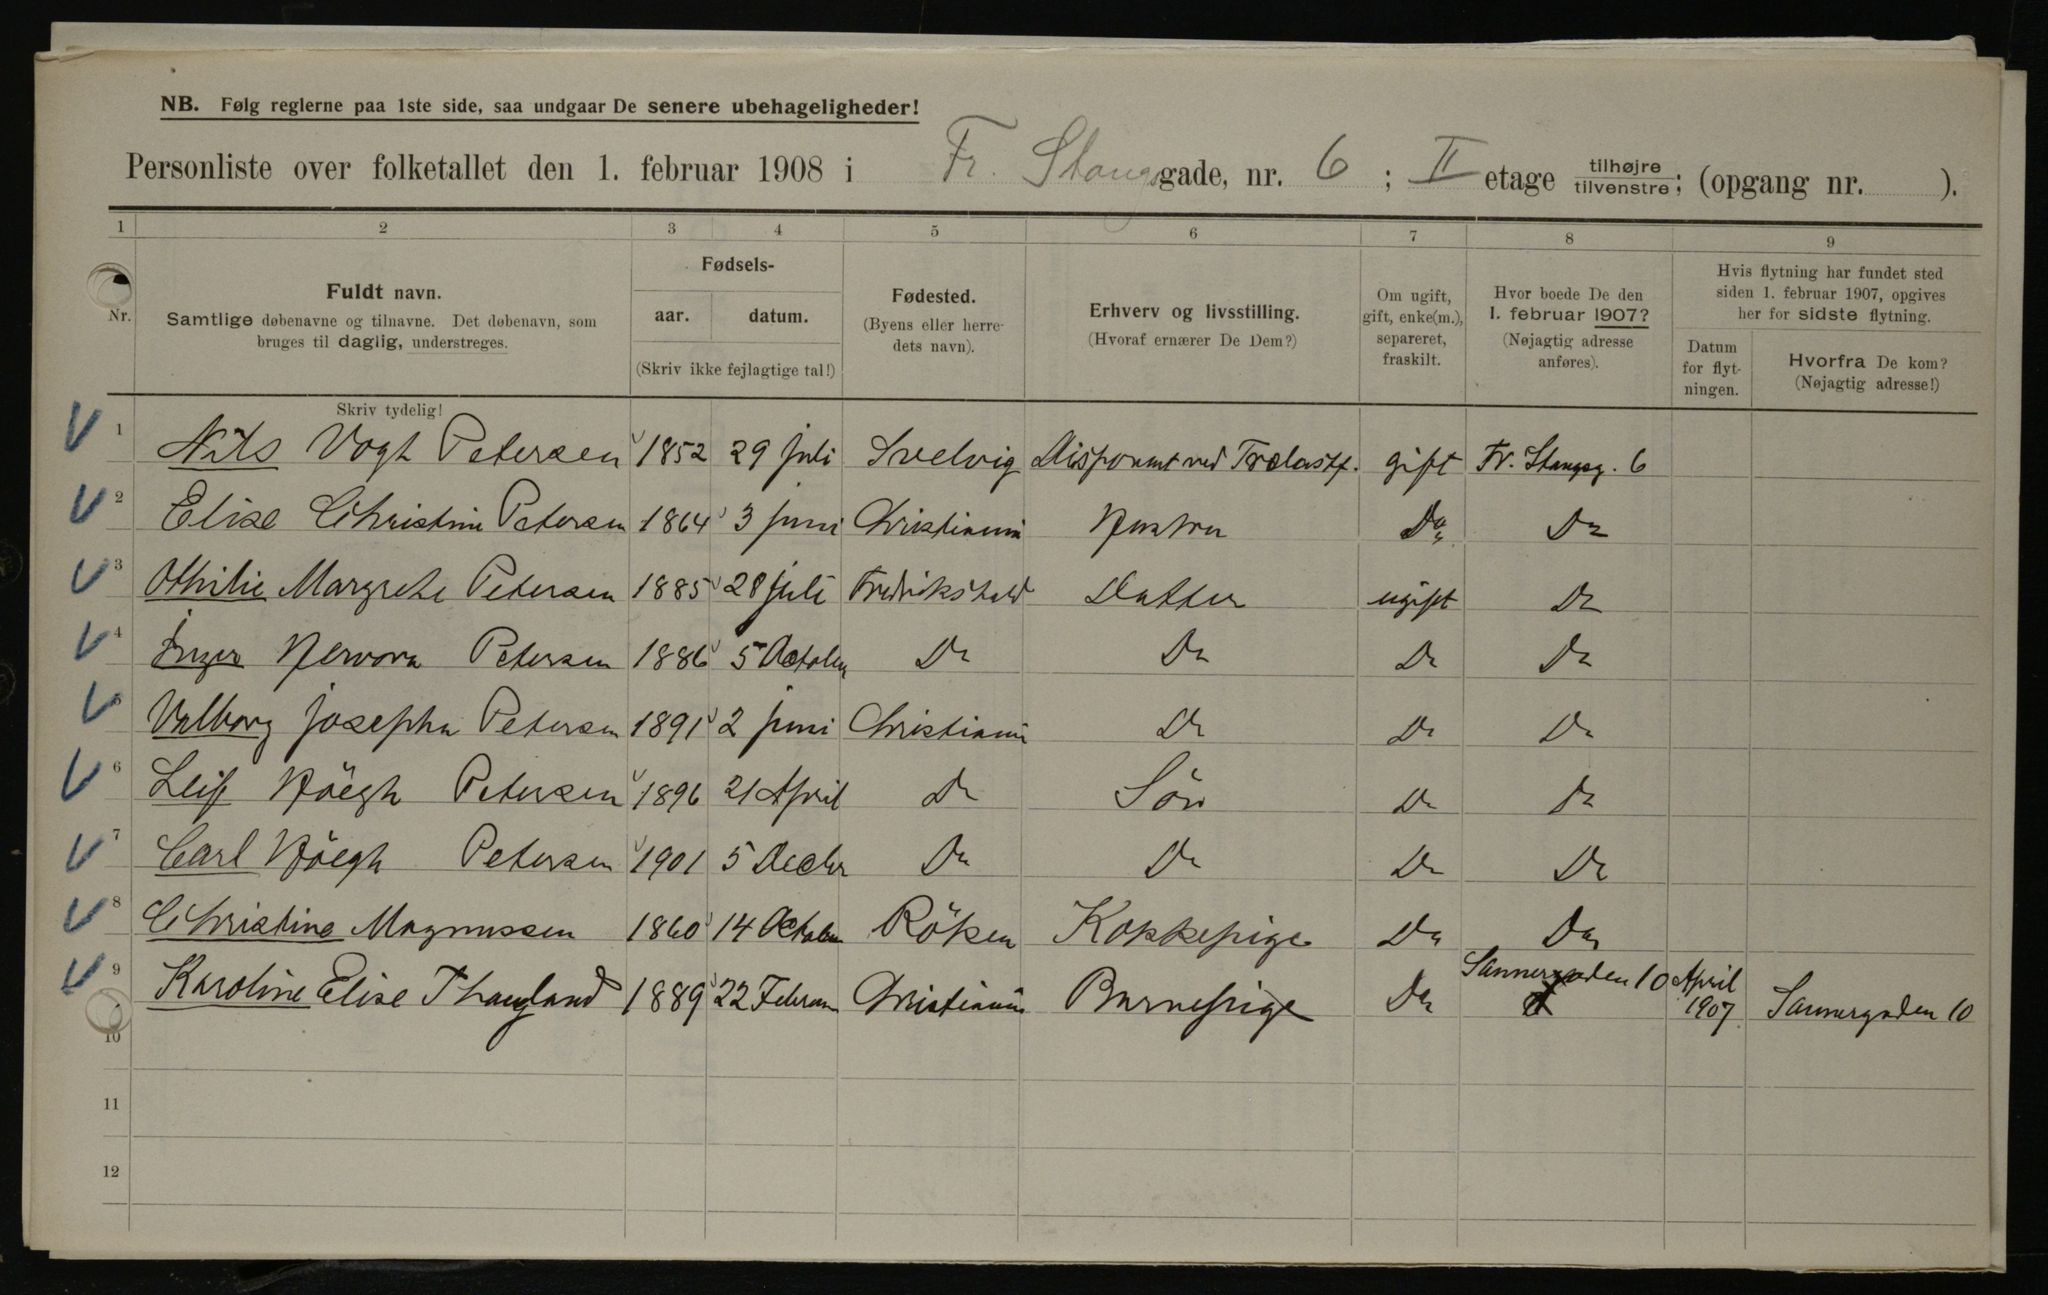 NB. Følg reglerne paa 1ste side, saa undgaar De senere ubehageligheder!
Personliste over folketallet den 1. februar 1908 i Fr. Stangsgade, nr. 6 ; II etage tilhøjre / tilvenstre; (opgang nr. ).
1 2 3 4 5 6 7 8 9
Nr.
Fuldt navn.
Samtlige døbenavne og tilnavne. Det døbenavn, som
bruges til daglig, understreges.
Skriv tydelig!
Fødsels-
aar. datum.
(Skriv ikke fejlagtige tal!)
Fødested.
(Byens eller herre-
dets navn).
Erhverv og livsstilling.
(Hvoraf ernærer De Dem?)
Om ugift,
gift, enke(m.),
separeret,
fraskilt.
Hvor boede De den
1. februar 1907?
(Nøjagtig adresse
anføres).
Hvis flytning har fundet sted
siden 1. februar 1907, opgives
her for sidste flytning.
Datum
for flyt-
ningen.
Hvorfra De kom?
(Nøjagtig adresse!)
1 Nils Vogt Petersen 1852 29 juli Svelvig Disponent ved Trælastf. gift Fr. Stangsg. 6
2 Elise Christine Petersen 1864 3 juni Christiania Hustru Do Do
3 Othilie Margrete Petersen 1885 28 juli Fredrikshald Datter ugift Do
4 Inger Petersen 1886 5 October Do Do Do Do
Valborg Josepha Petersen 1891 2 juni Christiania Do Do Do
6 Leif Höegh Petersen 1896 21 April Do Sön Do Do
7 Carl Höegh Petersen 1901 5 Decbr Do Do Do Do
8 Christine Magnussen 1860 14 October Röken Kokkepige Do Do
9 Karoline Elise Thaugland 1889 22 Februar Christiania Barnepige Do Sannergaden 10 April 1907 Sannergaden 10
10
11
12